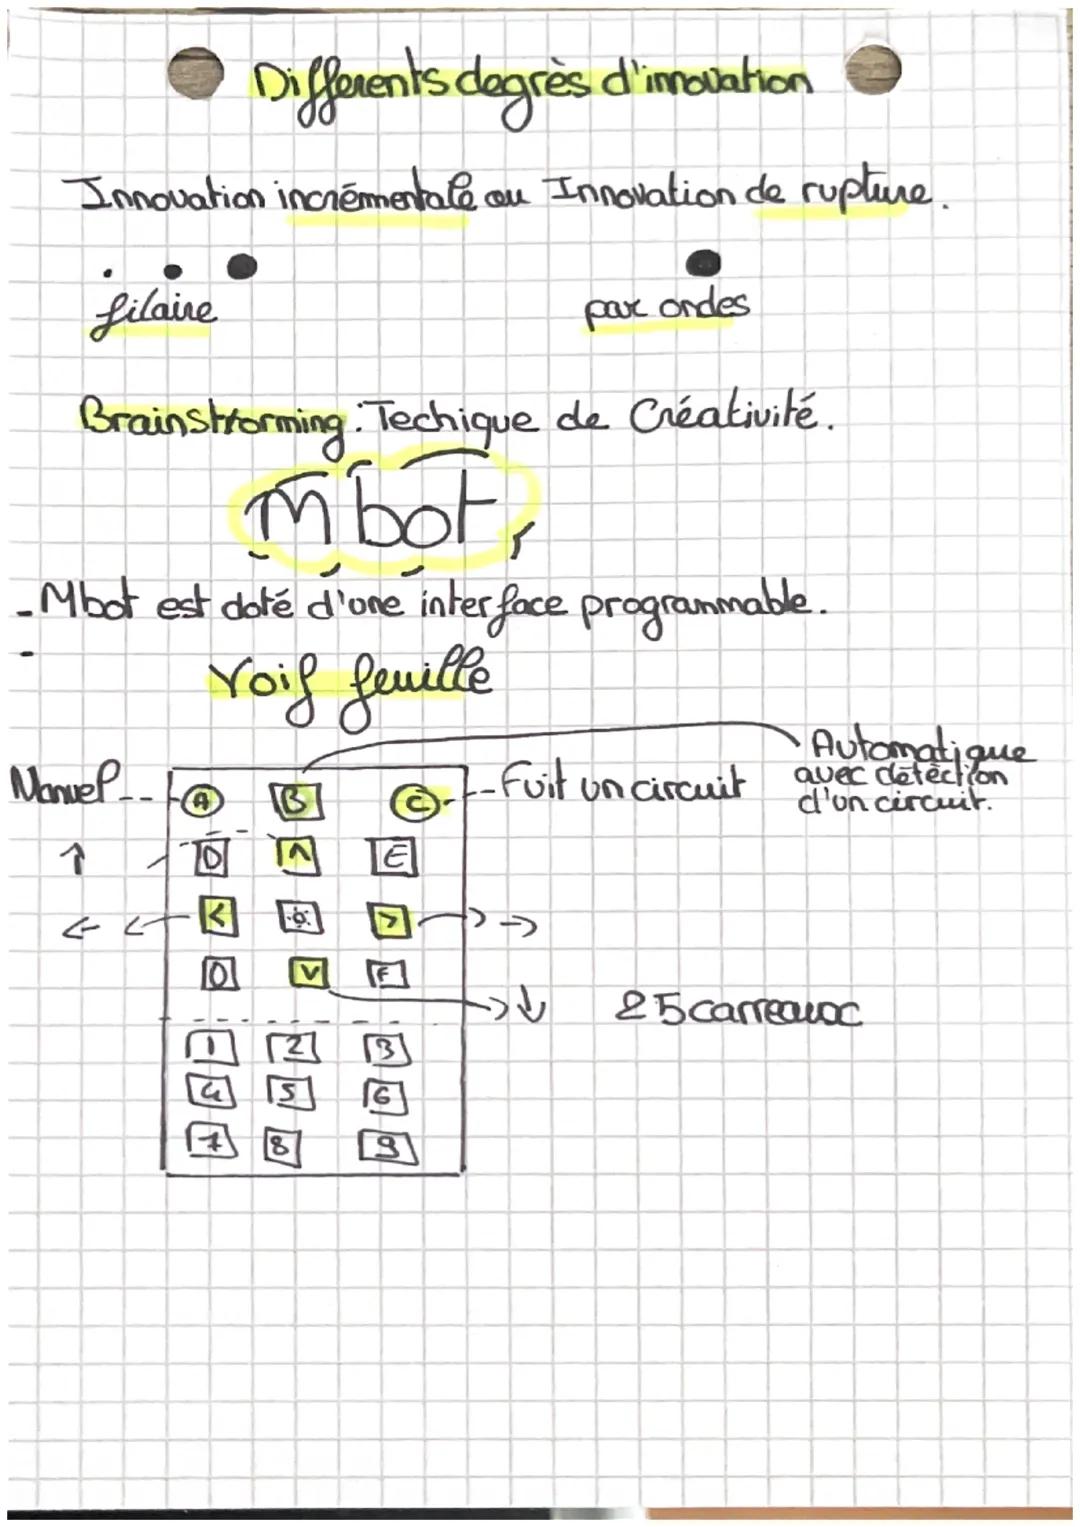 Differents degrès d'innovation
Innovation incrémentale ou Innovation de rupture.
filaire par ondes
Brainstrorming : Techique de Créativité.
Mbot
- Mbot est doté d'une interface programmable.
-
Voif feuille
Automatique
avec détéction
d'un circuit.
Manuel -- A B C -- Fuit un circuit
↑ D ^ E
← ← < > → →
0 v F → ↓ 25 carreaux
1 2 3
4 5 6
7 8 9